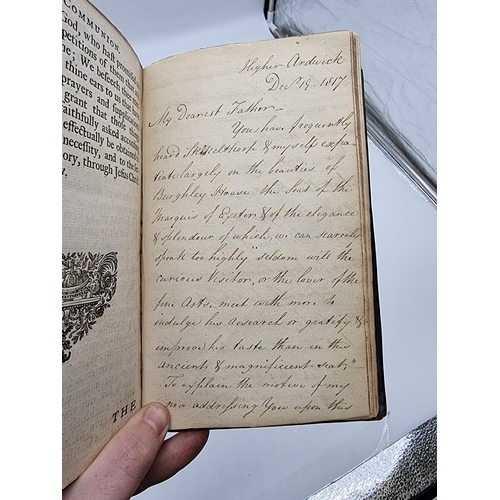 COMMUNION.
God, who hast promised
petitions of them that
me; We beseech thee
thine ears to us that
prayers and supplica
grant that those thin
faithfully asked accordin
effectually be obtained
necessity, and to the se
ory, through Jesus Chri
THE
Higher Ardwick
Decr 19. 1817
My Dearest Father—
You have frequently
heard & myself expa-
tiate largely on the beauties of
Burghley House the Seat of the
Marquis of Exeter & of the elegance
& splendour of which, we can scarcely
speak too highly "seldom will the
curious Visitor, or the lover of the
fine Arts, meet with more to
indulge his research or gratify &
improve his taste than in this
ancient & magnificent seat,"
To explain the motive of my
now addressing You upon this